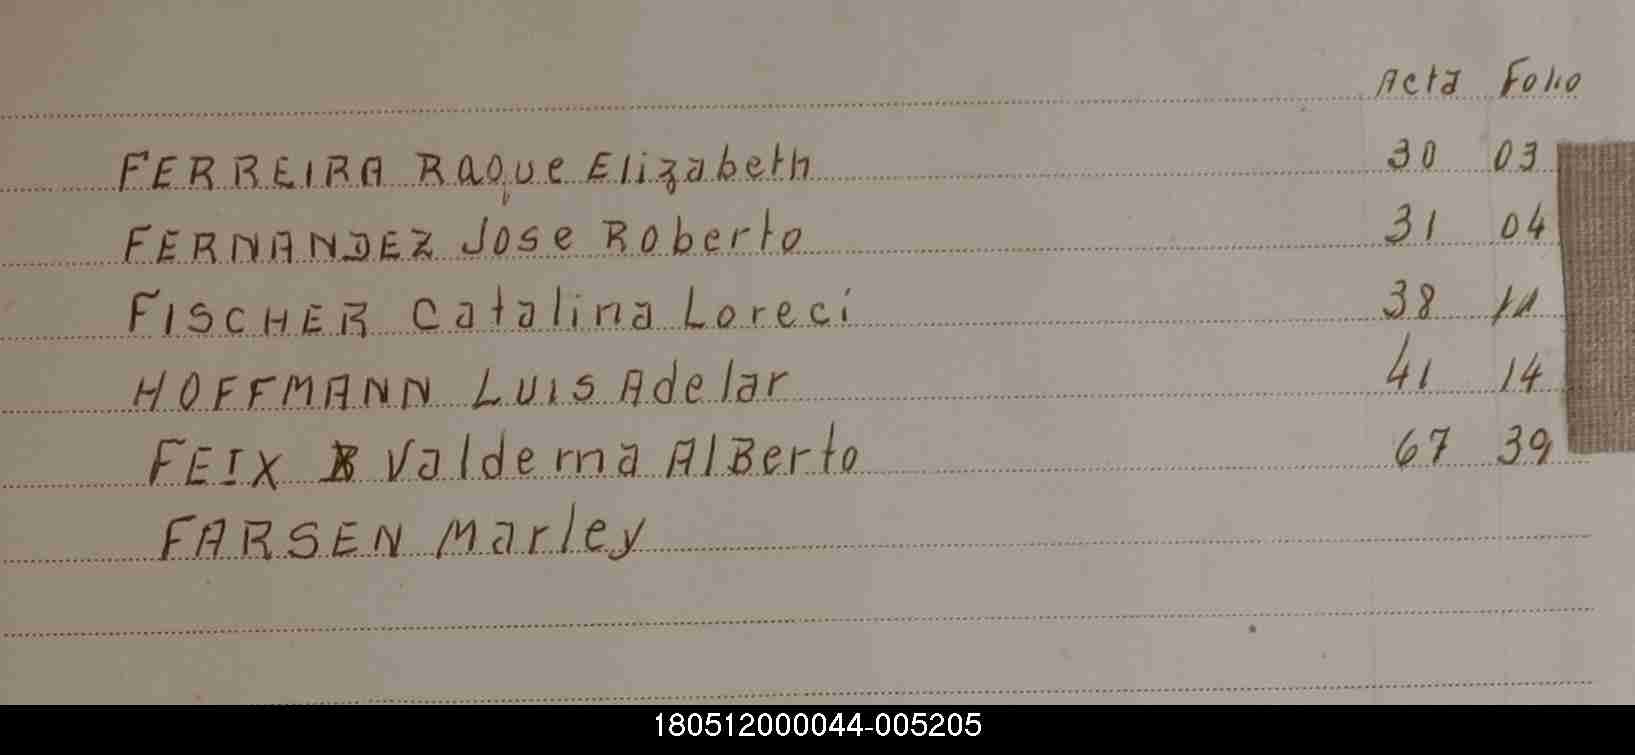 Acta Folio
FERREIRA Raque Elizabeth 30 03
FERNANDEZ Jose Roberto 31 04
FISCHER Catalina Loreci 38 11
HOFFMANN LUIS Adelar 41 14
FEIX Valderna AlBerto 67 39
FARSEN Marley
180512000044-005205